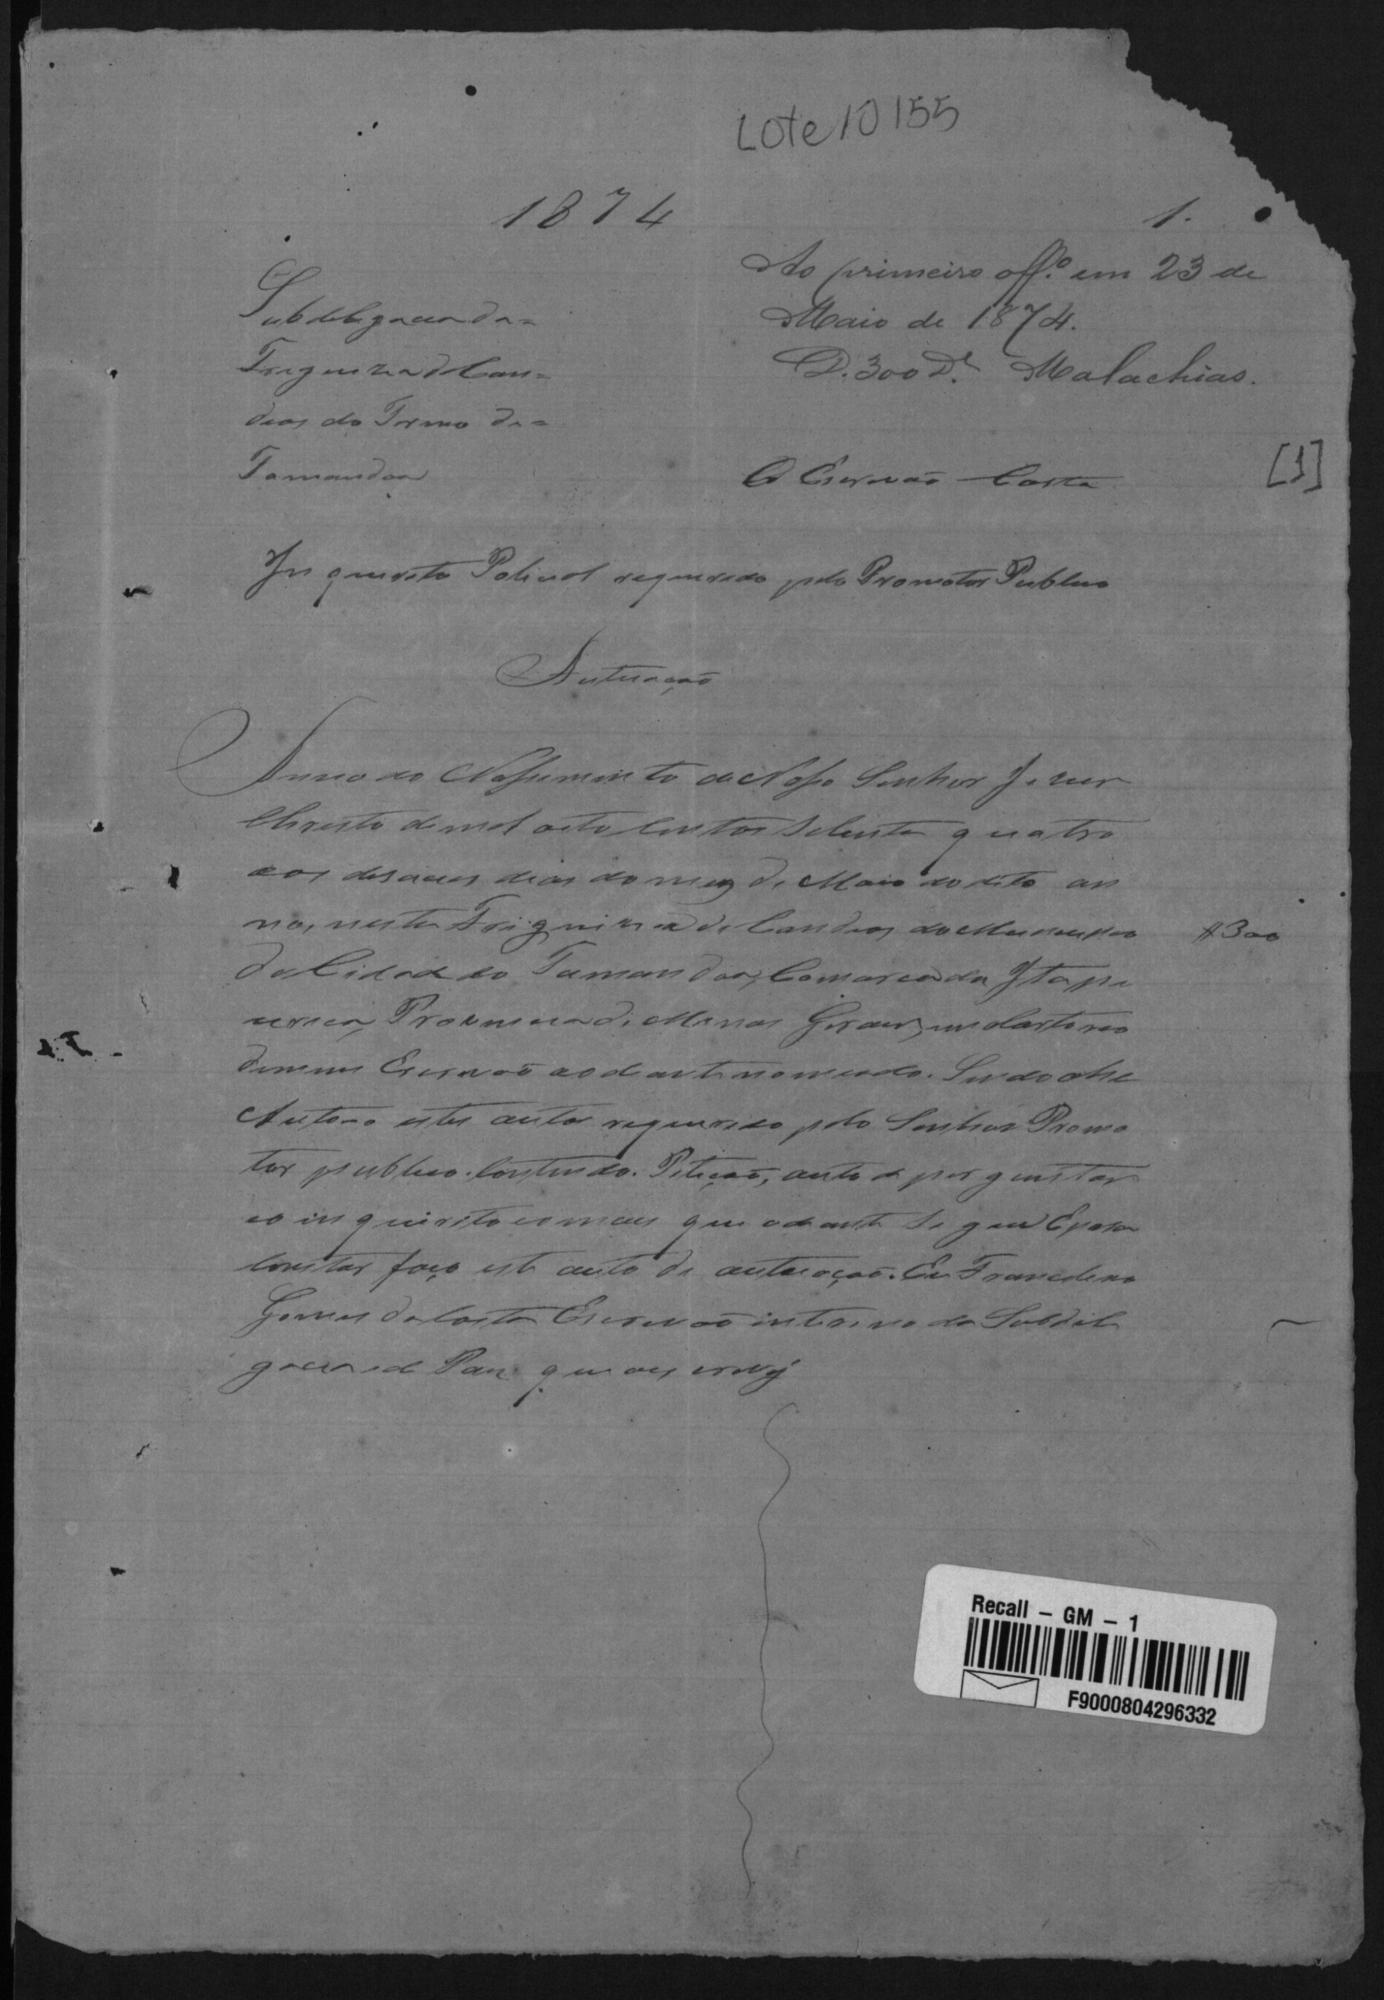 Lote 10155
1874
1.
Ao primeiro off.º em 23 de
Maio de 1874.
D. 300 D.r Malachias.
Subdelegacia da=
Freguezia de Can=
deas do Termo de=
Tamandoa
O Escrivão Costa
[1]
Inquerito Policial requerido pelo Promotor Publico
Autuação
Anno do Nassimento de Nosso Senhor Jezus
Christo de mil oito Centos Setenta quatro
aos deseceis dias do mez de Maio do dito an
no, nesta Freguizia de Candeas do Municipio
da Cidade do Tamandoa, Comarca da Itape
#300
cerica, Provincia de Minas Geraes, em Cartorio
de mim Escrivão ao diante nomeado. Sendo ahi
Autoro estes autos requerido pelo Senhor Promo
tor publico. Contendo. Petição, auto de perguntas
e o inquirito e o mais que adiante se gue E para
Constar faço este auto de autuação. Eu Francelino
Gomes da Costa Escrivão interino da Subdele
gacia de Paz que ou escrevy
Recall - GM - 1
F9000804296332